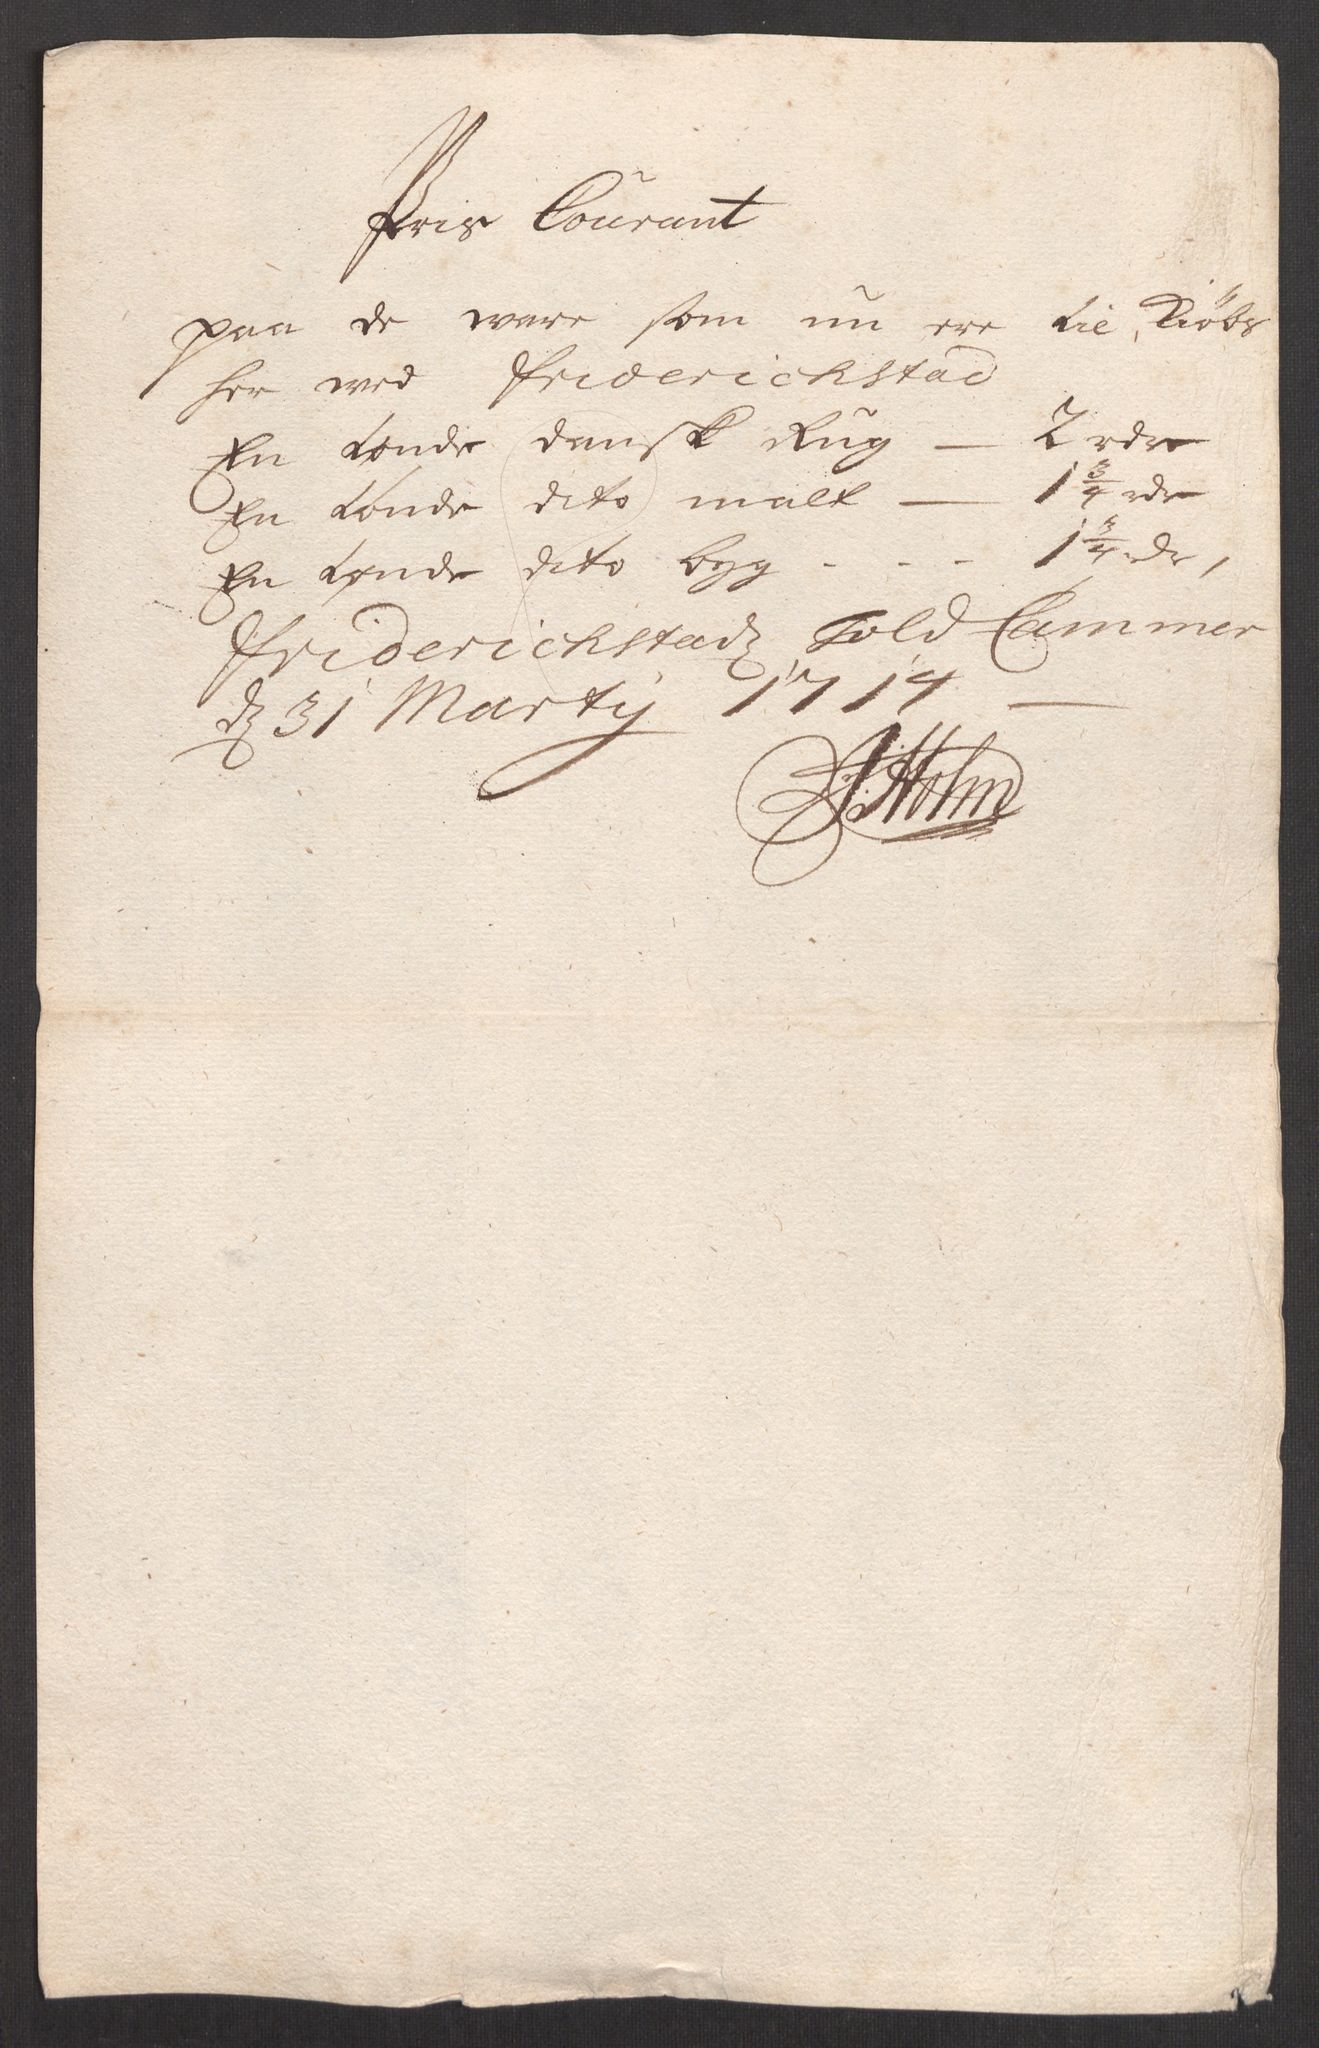 Pris Courant
paa de ware som nu ere til Kiøbs
her wed Friderichstad
En tønde dansk Rug — 2 rdr
En tønde dito malt — 1 3/4 rdr
En tønde dito byg - - - 1 3/4 rdr,
Friderichstadz Told Cammer
dz 31 Martij 1714 —
Holm